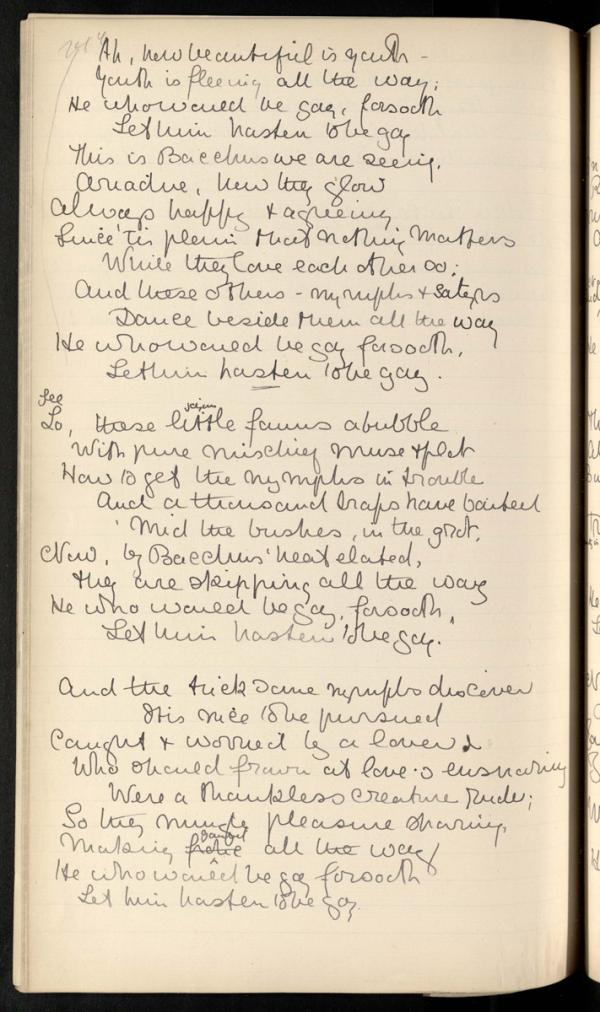 Ah, how beautiful is youth -
Youth is fleeing all the way;
He who would be gay, forsooth
Let him hasten to be gay
This is Bacchus we are seeing,
Ariadne, how they glow
Always happy & agreeing
Since 'tis plain that nothing matters
While they love each other so;
And these others - nymphs & satyrs
Dance beside them all the way
He who would be gay forsooth,
Let him hasten to be gay.
See
Lo, these little fauns abubble
With pure mischief muse & plot
How to get the nymphs in trouble
And a thousand traps have baited
'Mid the bushes, in the grot.
Now, by Bacchus' heat elated,
they are skipping all the way
He who would be gay, forsooth,
Let him hasten to be gay.
And the trick some nymphs discover
It is nice to be pursued
Caught & worried by a lover
Who should frown at love's ensnaring
Were a thankless creature rude;
So they mingle pleasure sharing,
Making frolic all the way
He who would be gay forsooth
Let him hasten to be gay.